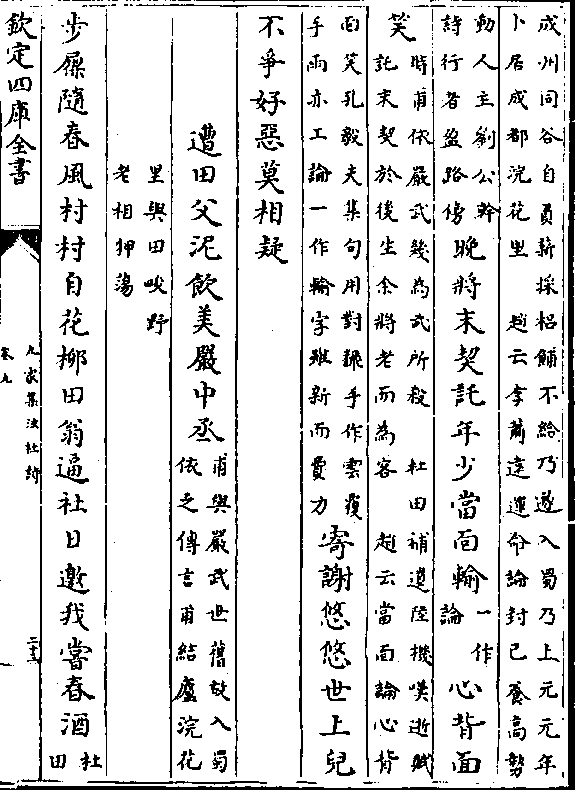 成州同谷自負薪採梠餔不給乃遂入蜀乃上元元年
卜居成都浣花里　趙云李蕭遠運命論封己養高勢
動人主劉公幹
詩行者盈路傍
晚將末契託年少當面輸
一作
論
心背面
笑
時甫依嚴武幾為武所殺　杜田補遺陸機嘆逝賦
託末契於後生余將老而為客　趙云當面論心背
面笑孔毅夫集句用對飜手作雲覆
手雨亦工論一作輸字雖新而費力
寄謝悠悠世上兒
不爭好惡莫相疑
遭田父泥飲美嚴中丞
甫與嚴武世舊故入蜀
依之傳言甫結廬浣花
里與田畯野
老相狎蕩
步屧隨春風村村自花柳田翁逼社日邀我嘗春酒
杜
田
欽定四庫全書
九家集注杜詩
卷九